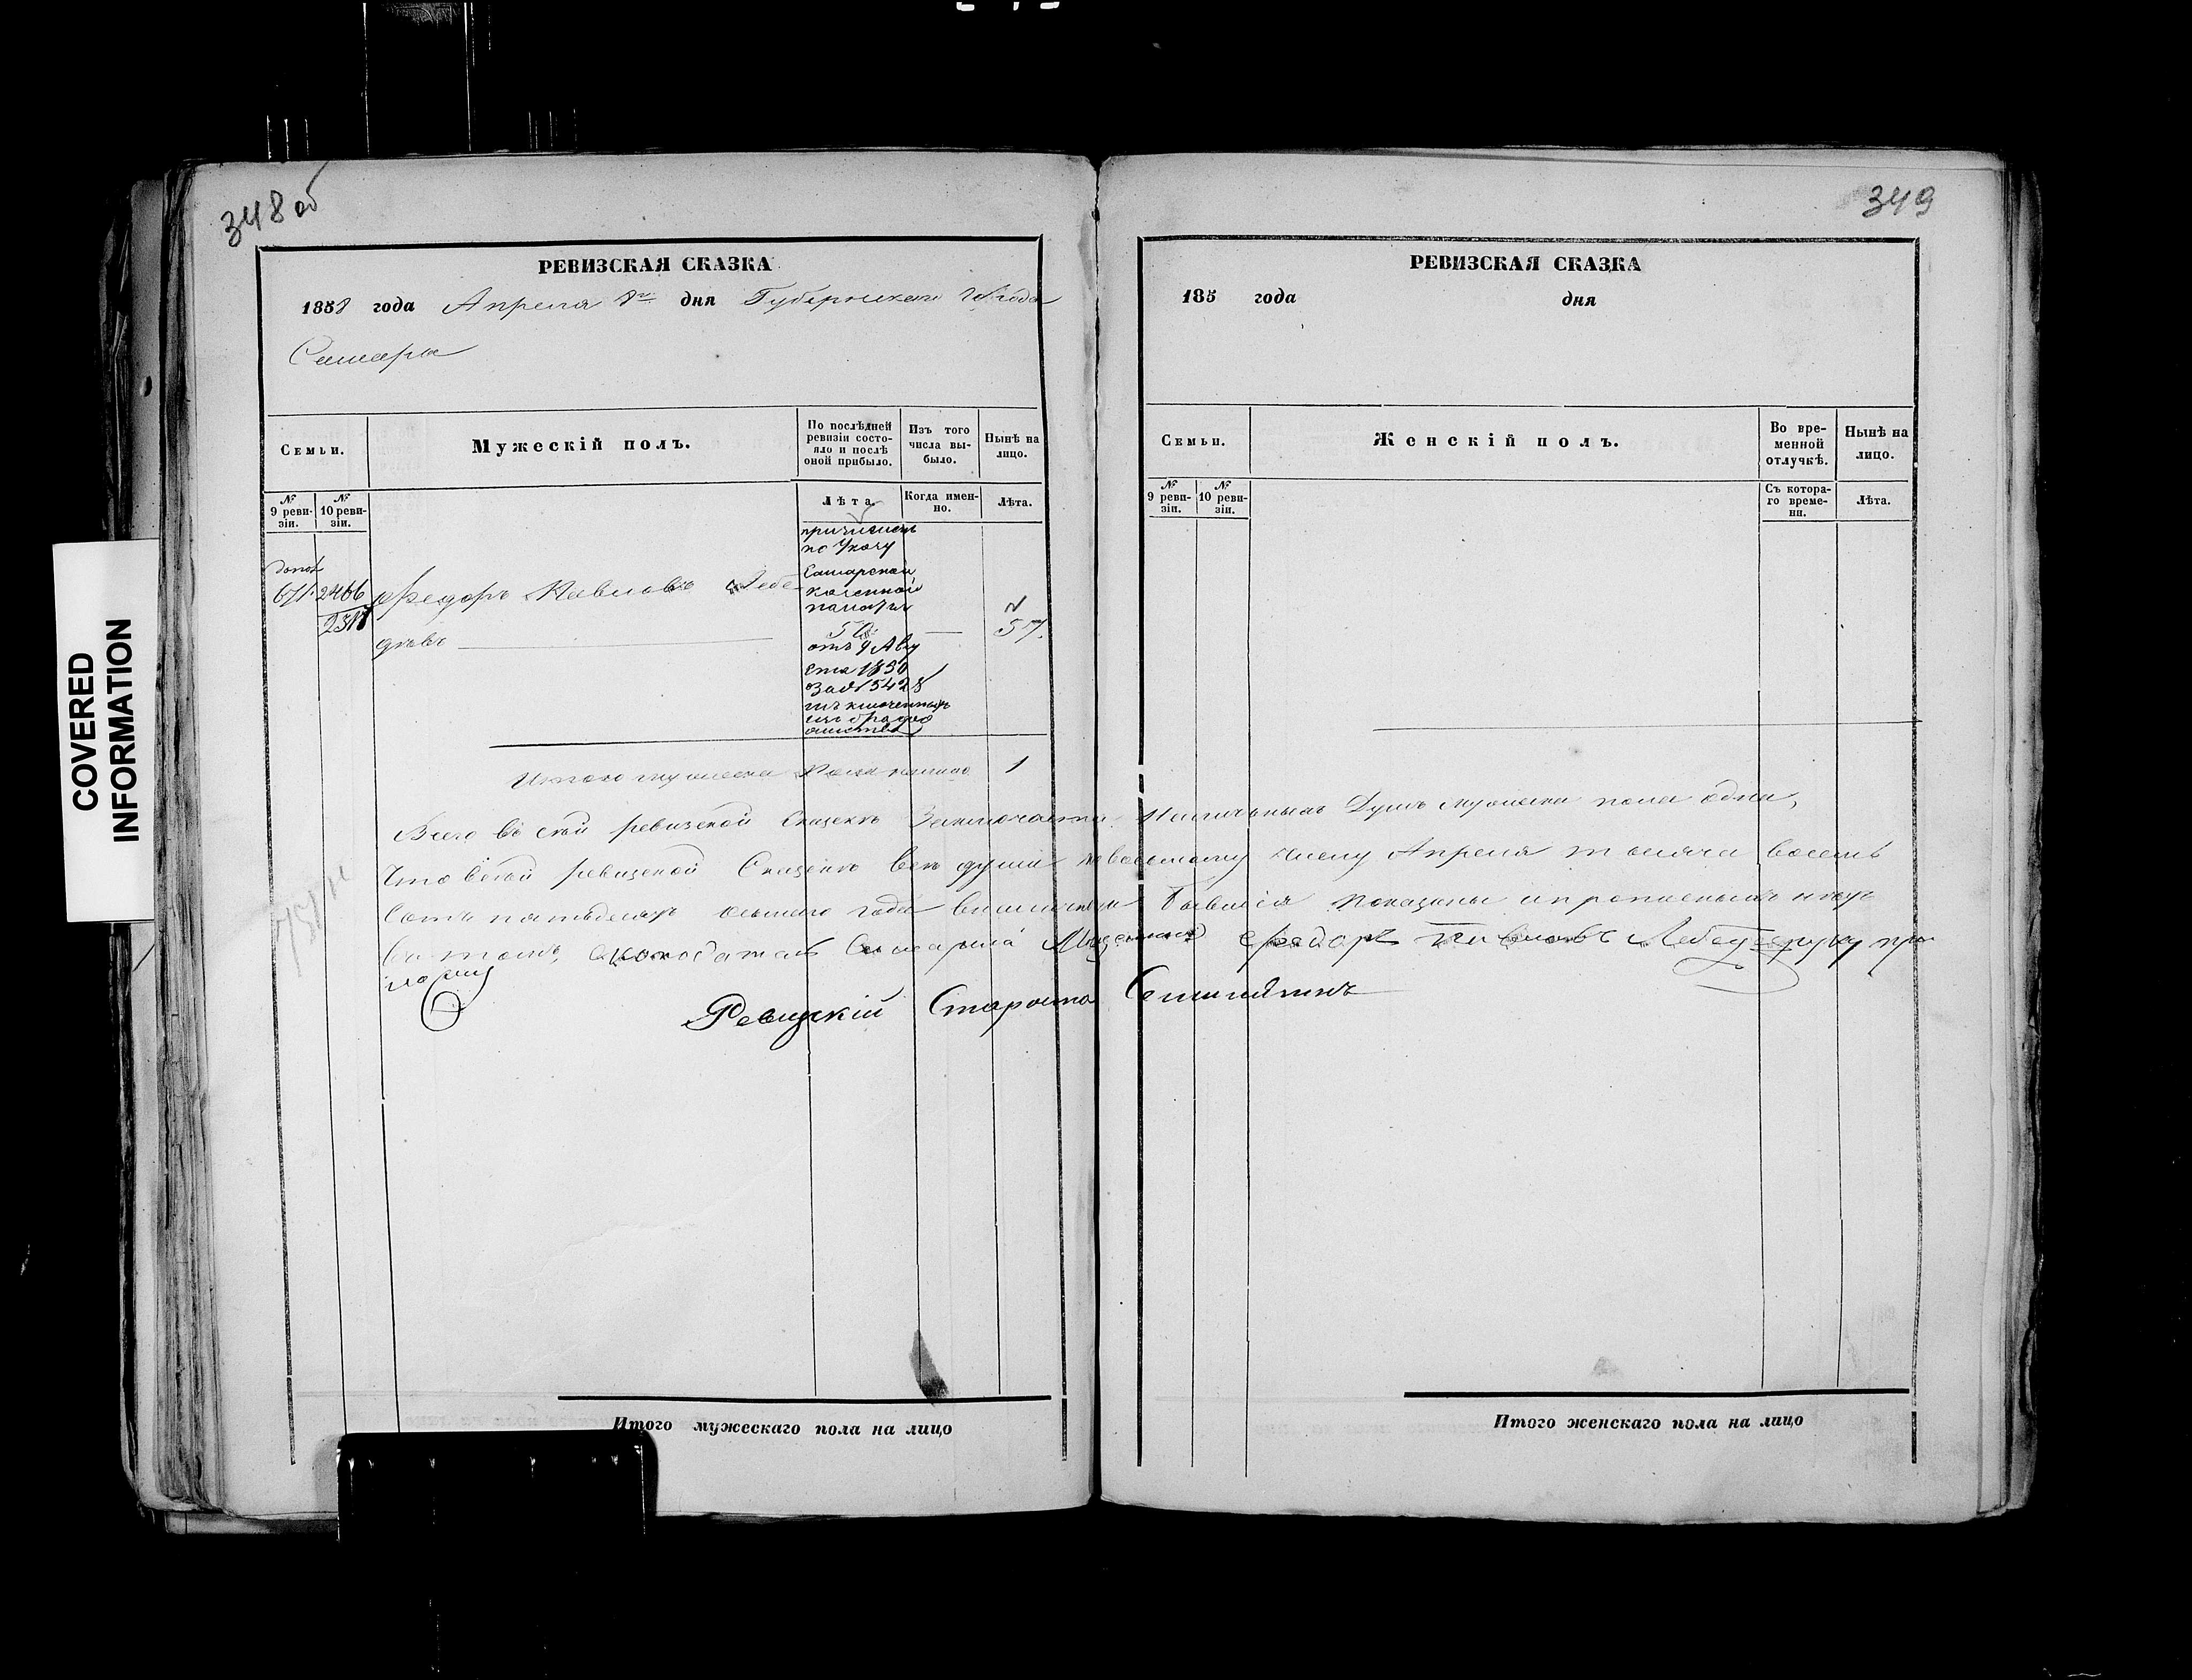 348 об
РЕВИЗСКАЯ СКАЗКА
1858 года Апреля 8го дня Губернскаго Города
Самары
Семьи.
Мужескій полъ.
По послѣдней ревизіи состо-
яло и послѣ
оной прибыло.
Изъ того
числа вы-
было.
Нынѣ на
лицо.
№
9 реви-
зіи.
№
10 реви-
зіи.
Лѣта.
Когда имен-
но.
Лѣта.
причислен
по Указу
Самарской
казенной
палаты
50
отъ 9 Авгу
ста 1850
за № 15428
допол
671
2466
Федоръ Павловъ Лебе-
девъ
57.
Итого мужеска пола налицо 1
Всего въ сей ревизской Сказкѣ Заключается Наличныхъ Душъ мужеска пола одна,
Что въ сей ревизской Сказкѣ все души по восьмому числу Апреля тысяча восемь
сотъ пятьдесятъ осьмаго года в наличности Бывшія показаны и прописныхъ нѣтъ
въ томъ, Самарскій Мещанинъ Федоръ Павловъ Лебедев руку при
ложилъ
Ревизскій Староста
Итого мужескаго пола на лицо
349
РЕВИЗСКАЯ СКАЗКА
185 года дня
Семьи.
Женскій полъ.
Во вре-
менной
отлучкѣ.
Нынѣ на
лицо.
№
9 реви-
зіи.
№
10 реви-
зіи.
Съ котора-
го време-
ни.
Лѣта.
Итого женскаго пола на лицо
COVERED
INFORMATION